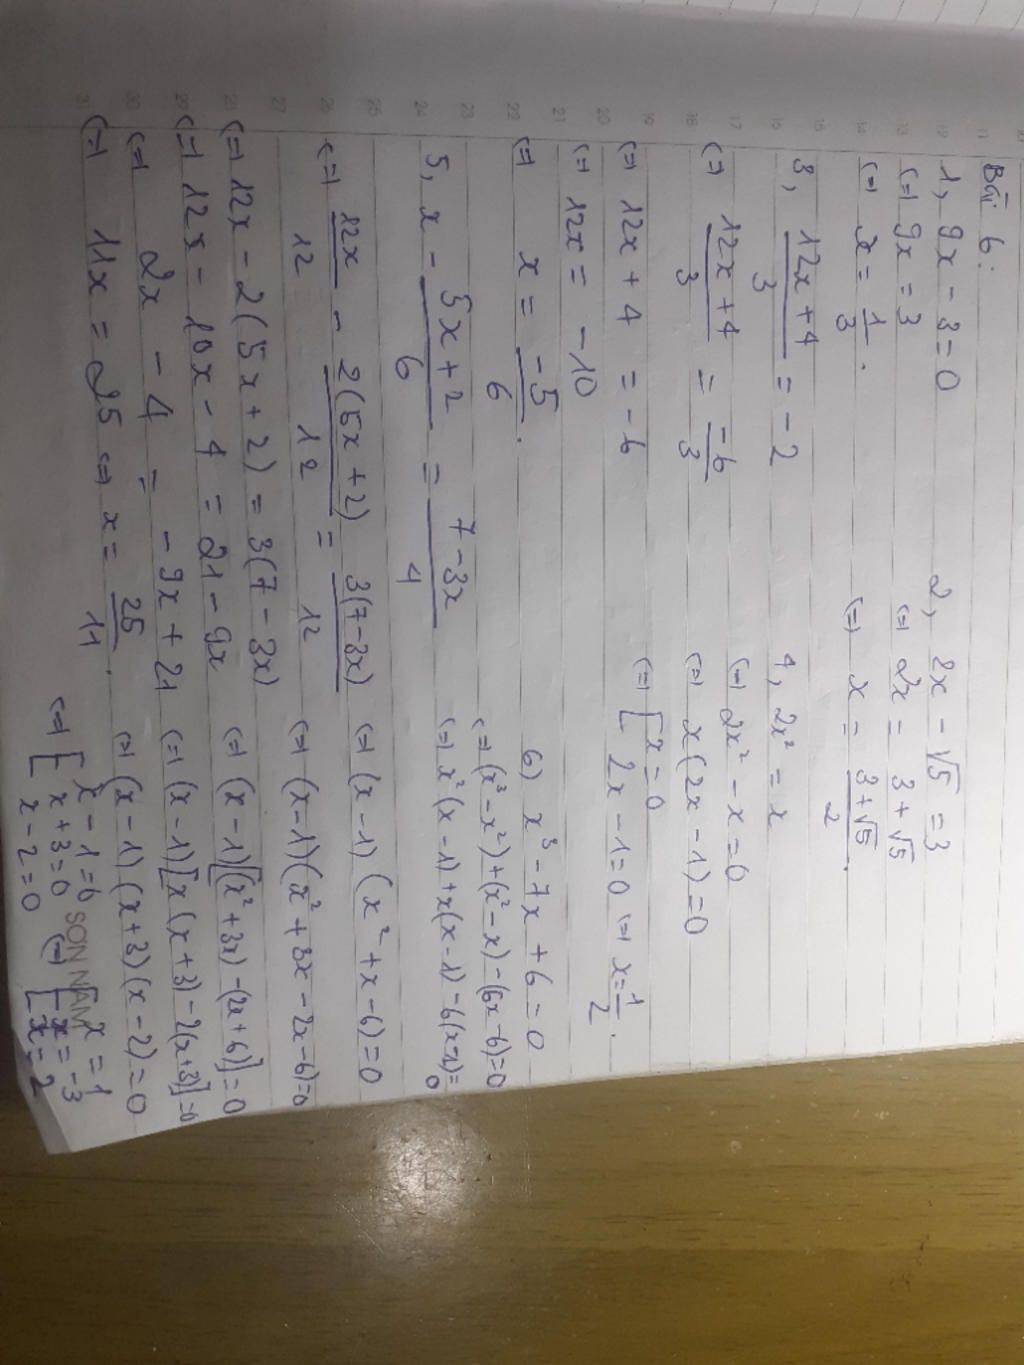 Bài 6:
1, 9x - 3 = 0
(=) 9x = 3
(=) x = 1/3.
2, 2x - √5 = 3
(=) 2x = 3 + √5
(=) x = (3 + √5)/2.
3, (12x + 4)/3 = -2
(=) (12x + 4)/3 = -6/3
(=) 12x + 4 = -6
(=) 12x = -10
(=) x = -5/6.
4, 2x² = x
(=) 2x² - x = 0
(=) x(2x - 1) = 0
(=) [ x = 0
2x - 1 = 0 (=) x = 1/2.
5, x - (5x + 2)/6 = (7 - 3x)/4
(=) 12x/12 - 2(5x + 2)/12 = 3(7 - 3x)/12
(=) 12x - 2(5x + 2) = 3(7 - 3x)
(=) 12x - 10x - 4 = 21 - 9x
(=) 2x - 4 = -9x + 21
(=) 11x = 25 (=) x = 25/11.
6) x³ - 7x + 6 = 0
(=) (x³ - x²) + (x² - x) - (6x - 6) = 0
(=) x²(x - 1) + x(x - 1) - 6(x - 1) = 0
(=) (x - 1)(x² + x - 6) = 0
(=) (x - 1)(x² + 3x - 2x - 6) = 0
(=) (x - 1)[(x² + 3x) - (2x + 6)] = 0
(=) (x - 1)[x(x + 3) - 2(x + 3)] = 0
(=) (x - 1)(x + 3)(x - 2) = 0
(=) [ x - 1 = 0 (=) [ x = 1
x + 3 = 0 x = -3
x - 2 = 0 x = 2
SƠN NAM
11
12
13
14
15
16
17
18
19
20
21
22
23
24
25
26
27
28
29
30
31